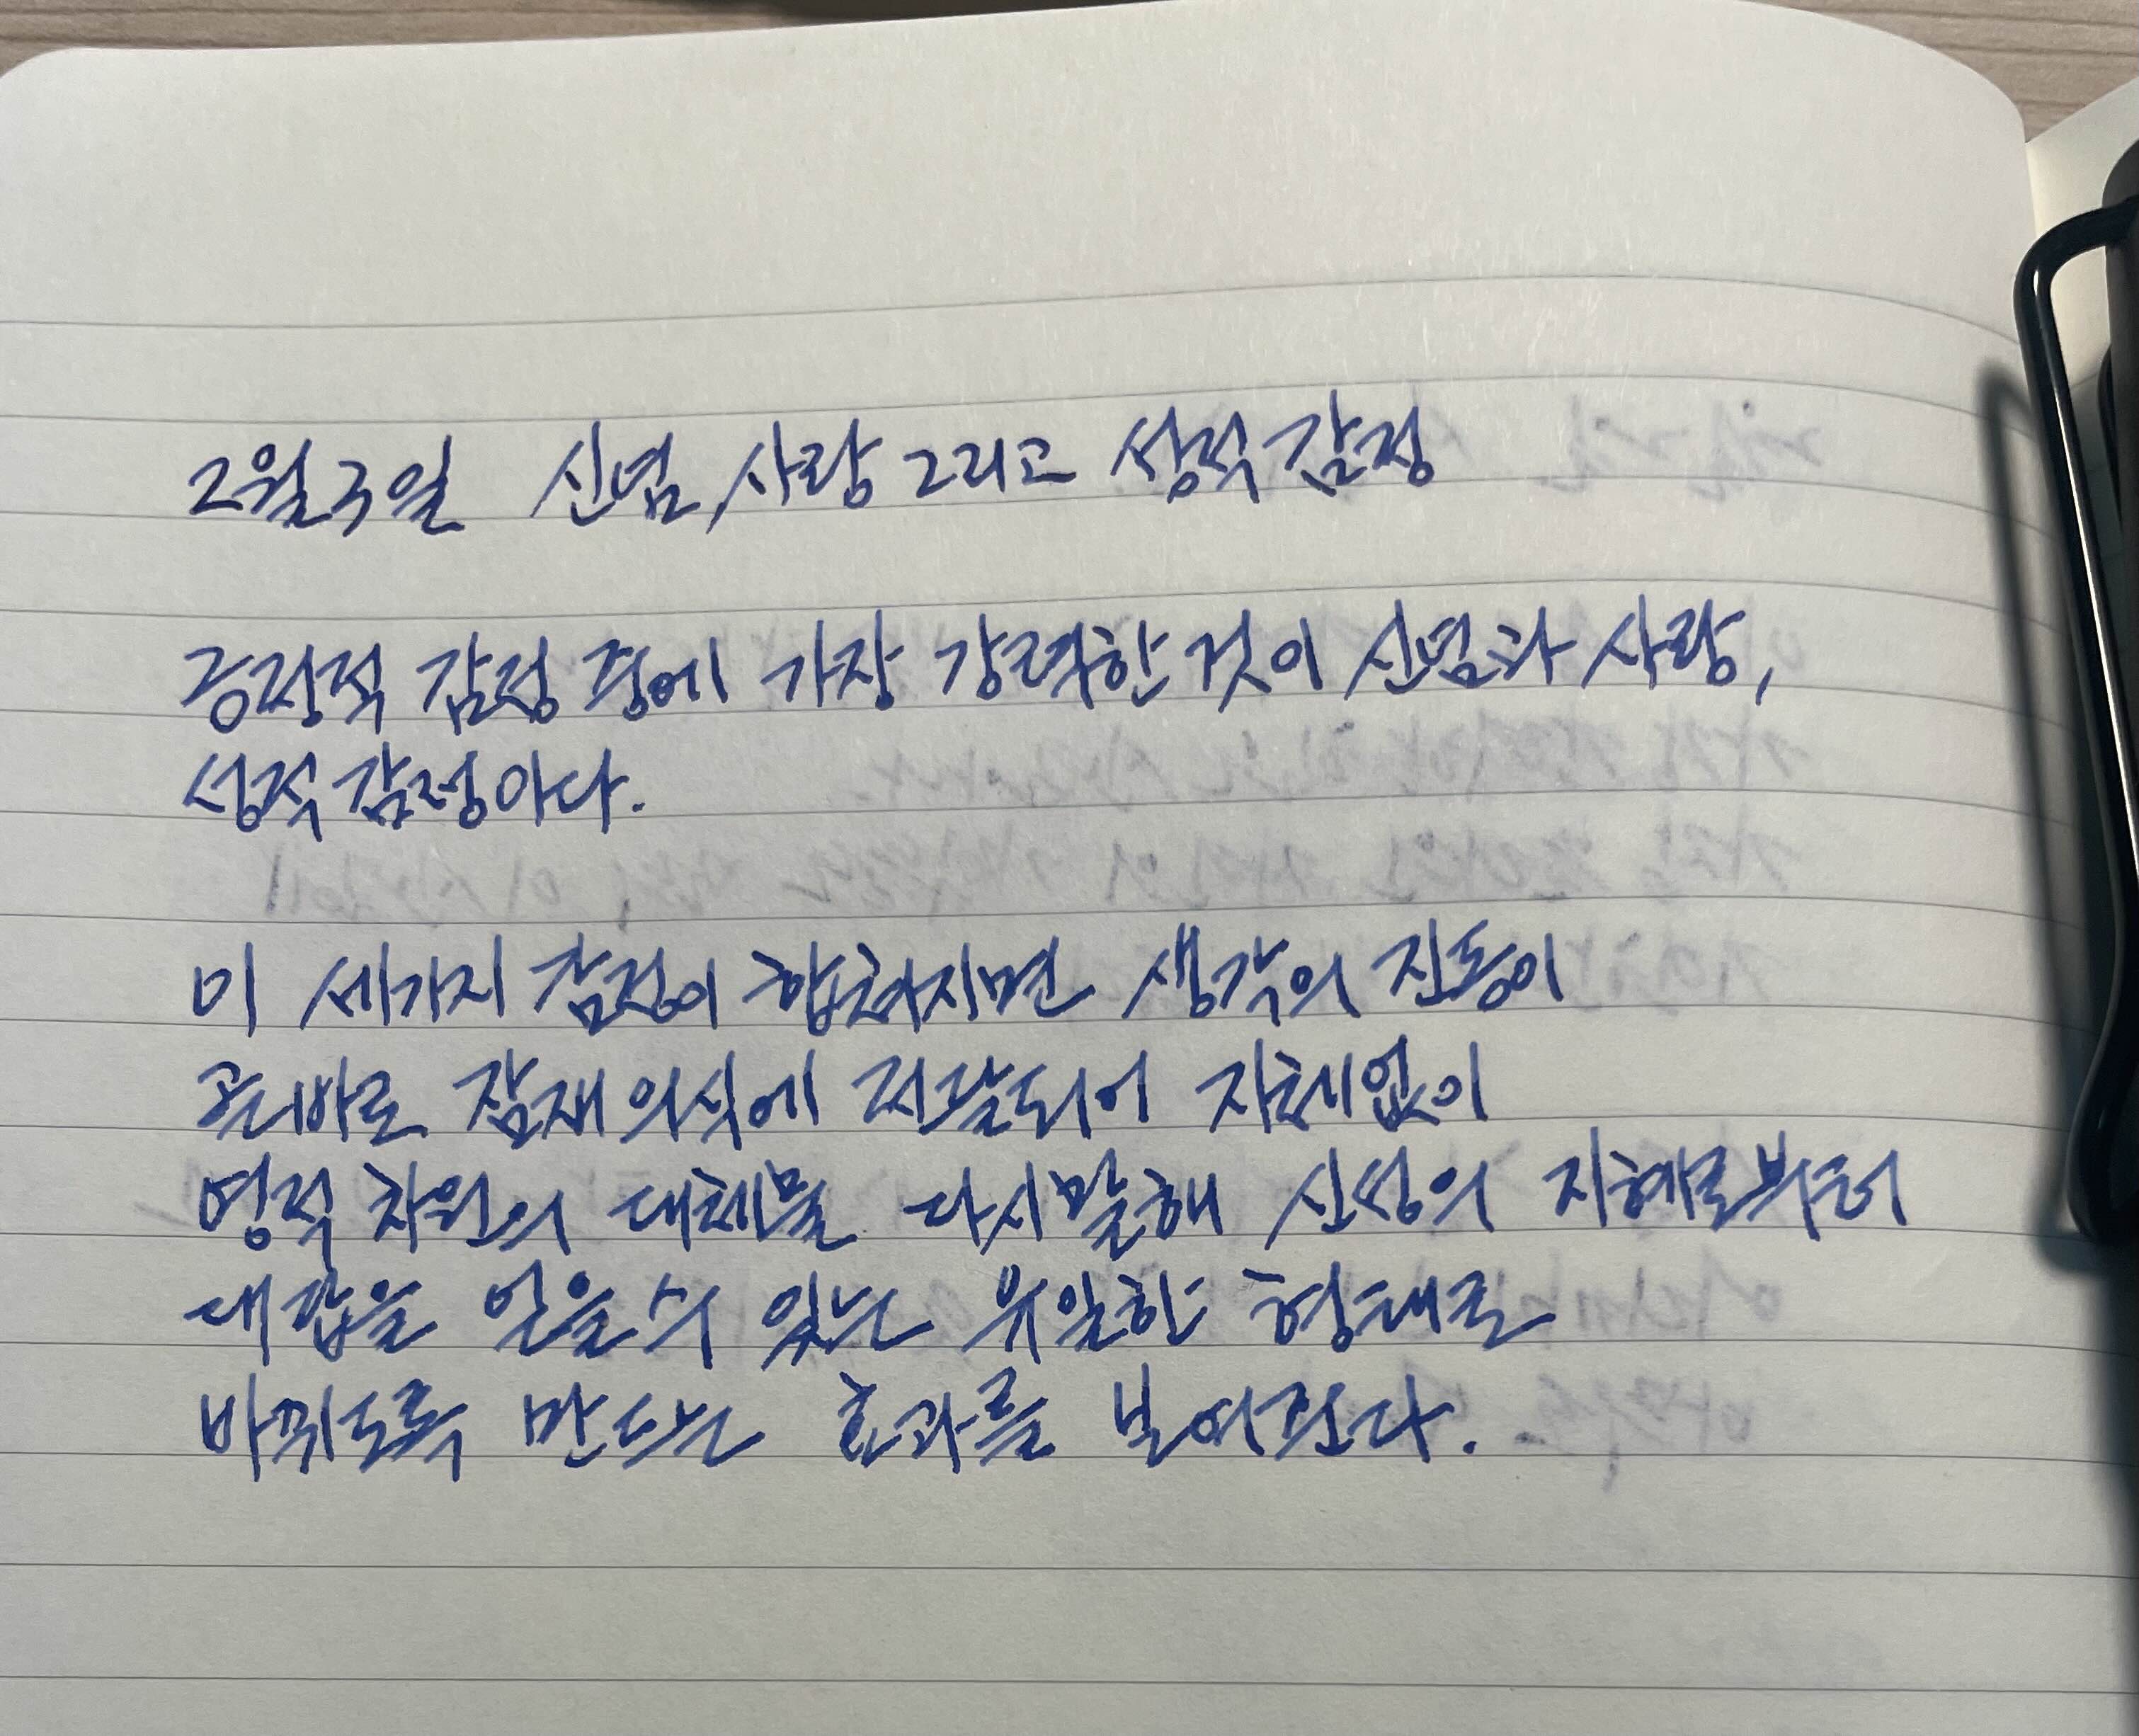 2월 3일 신념, 사랑 그리고 성적 감정
긍정적 감정 중에 가장 강력한 것이 신념과 사랑,
성적 감정이다.
이 세가지 감정이 합쳐지면 생각의 진동이
곧바로 잠재의식에 전달되어 지체없이
영적 차원의 대체물 다시말해 신성의 지혜로부터
대답을 얻을 수 있는 유일한 형태로
바뀌도록 만드는 효과를 보여준다.